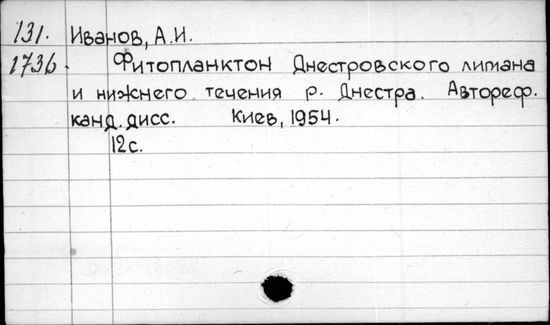 131. Иванов, А.И.
1736. Фитопланктон Днестровского лимана
и нижнего течения р. Днестра. Автореф.
канд. дисс. Киев, 1954.
12с.